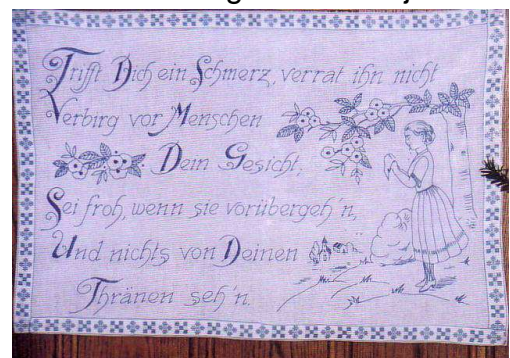 Trifft Dich ein Schmerz, verrat ihn nicht
Verbirg vor Menschen
Dein Gesicht,
Sei froh, wenn sie vorübergeh'n,
Und nichts von Deinen
Thränen seh'n.